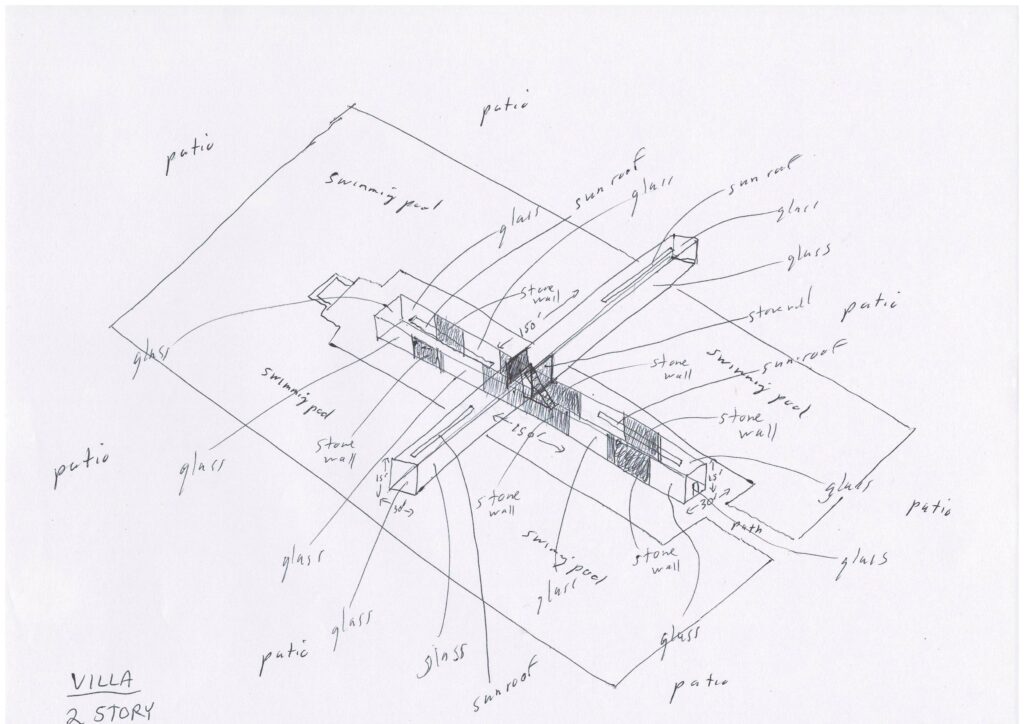 patio
patio
swimming pool
sunroof
glass
glass
sunroof
glass
glass
stone
wall
150'
patio
stone
wall
swimming pool
sunroof
glass
swimming pool
150'
stone
wall
patio
glass
stone
wall
15'
30'
stone
wall
15'
30'
glass
patio
path
glass
swimming pool
stone
wall
glass
glass
glass
glass
patio
glass
sunroof
patio
VILLA
2 STORY